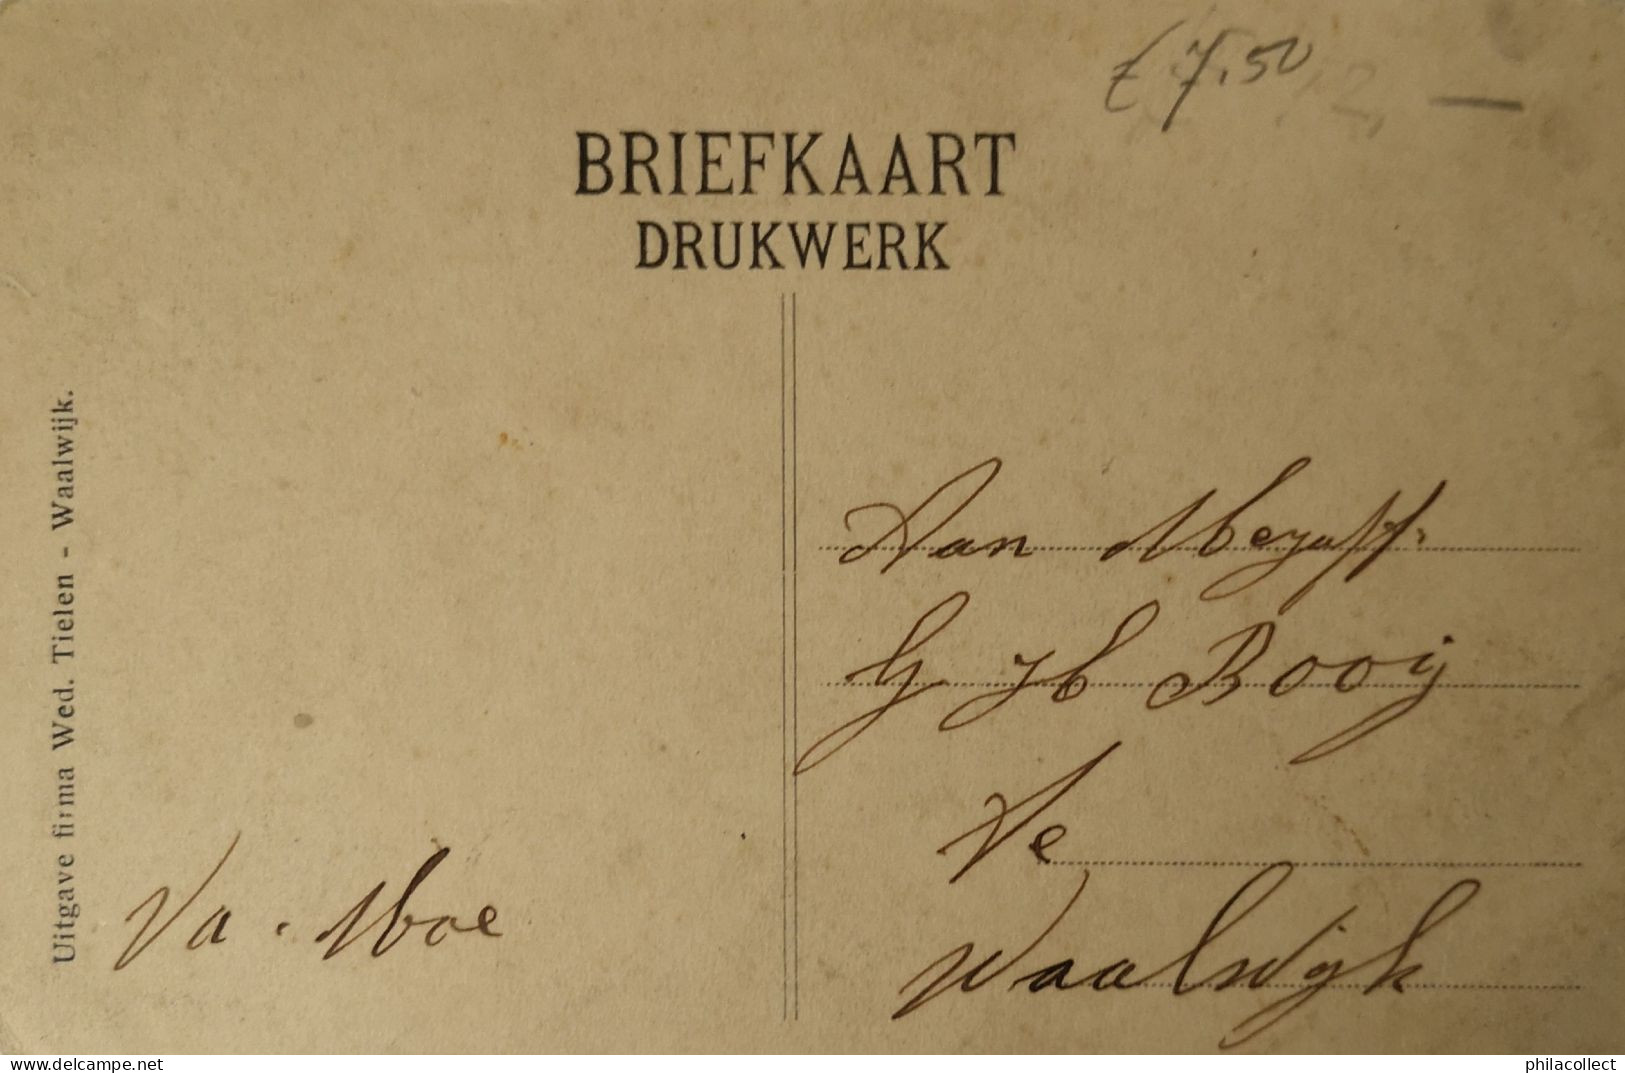 £ 7,50
BRIEFKAART
DRUKWERK
Uitgave firma Wed. Tielen - Waalwijk.
Aan Mejuff.
G Booij
Te
Waalwijk
Va. Moe
delcampe.net
philacollect